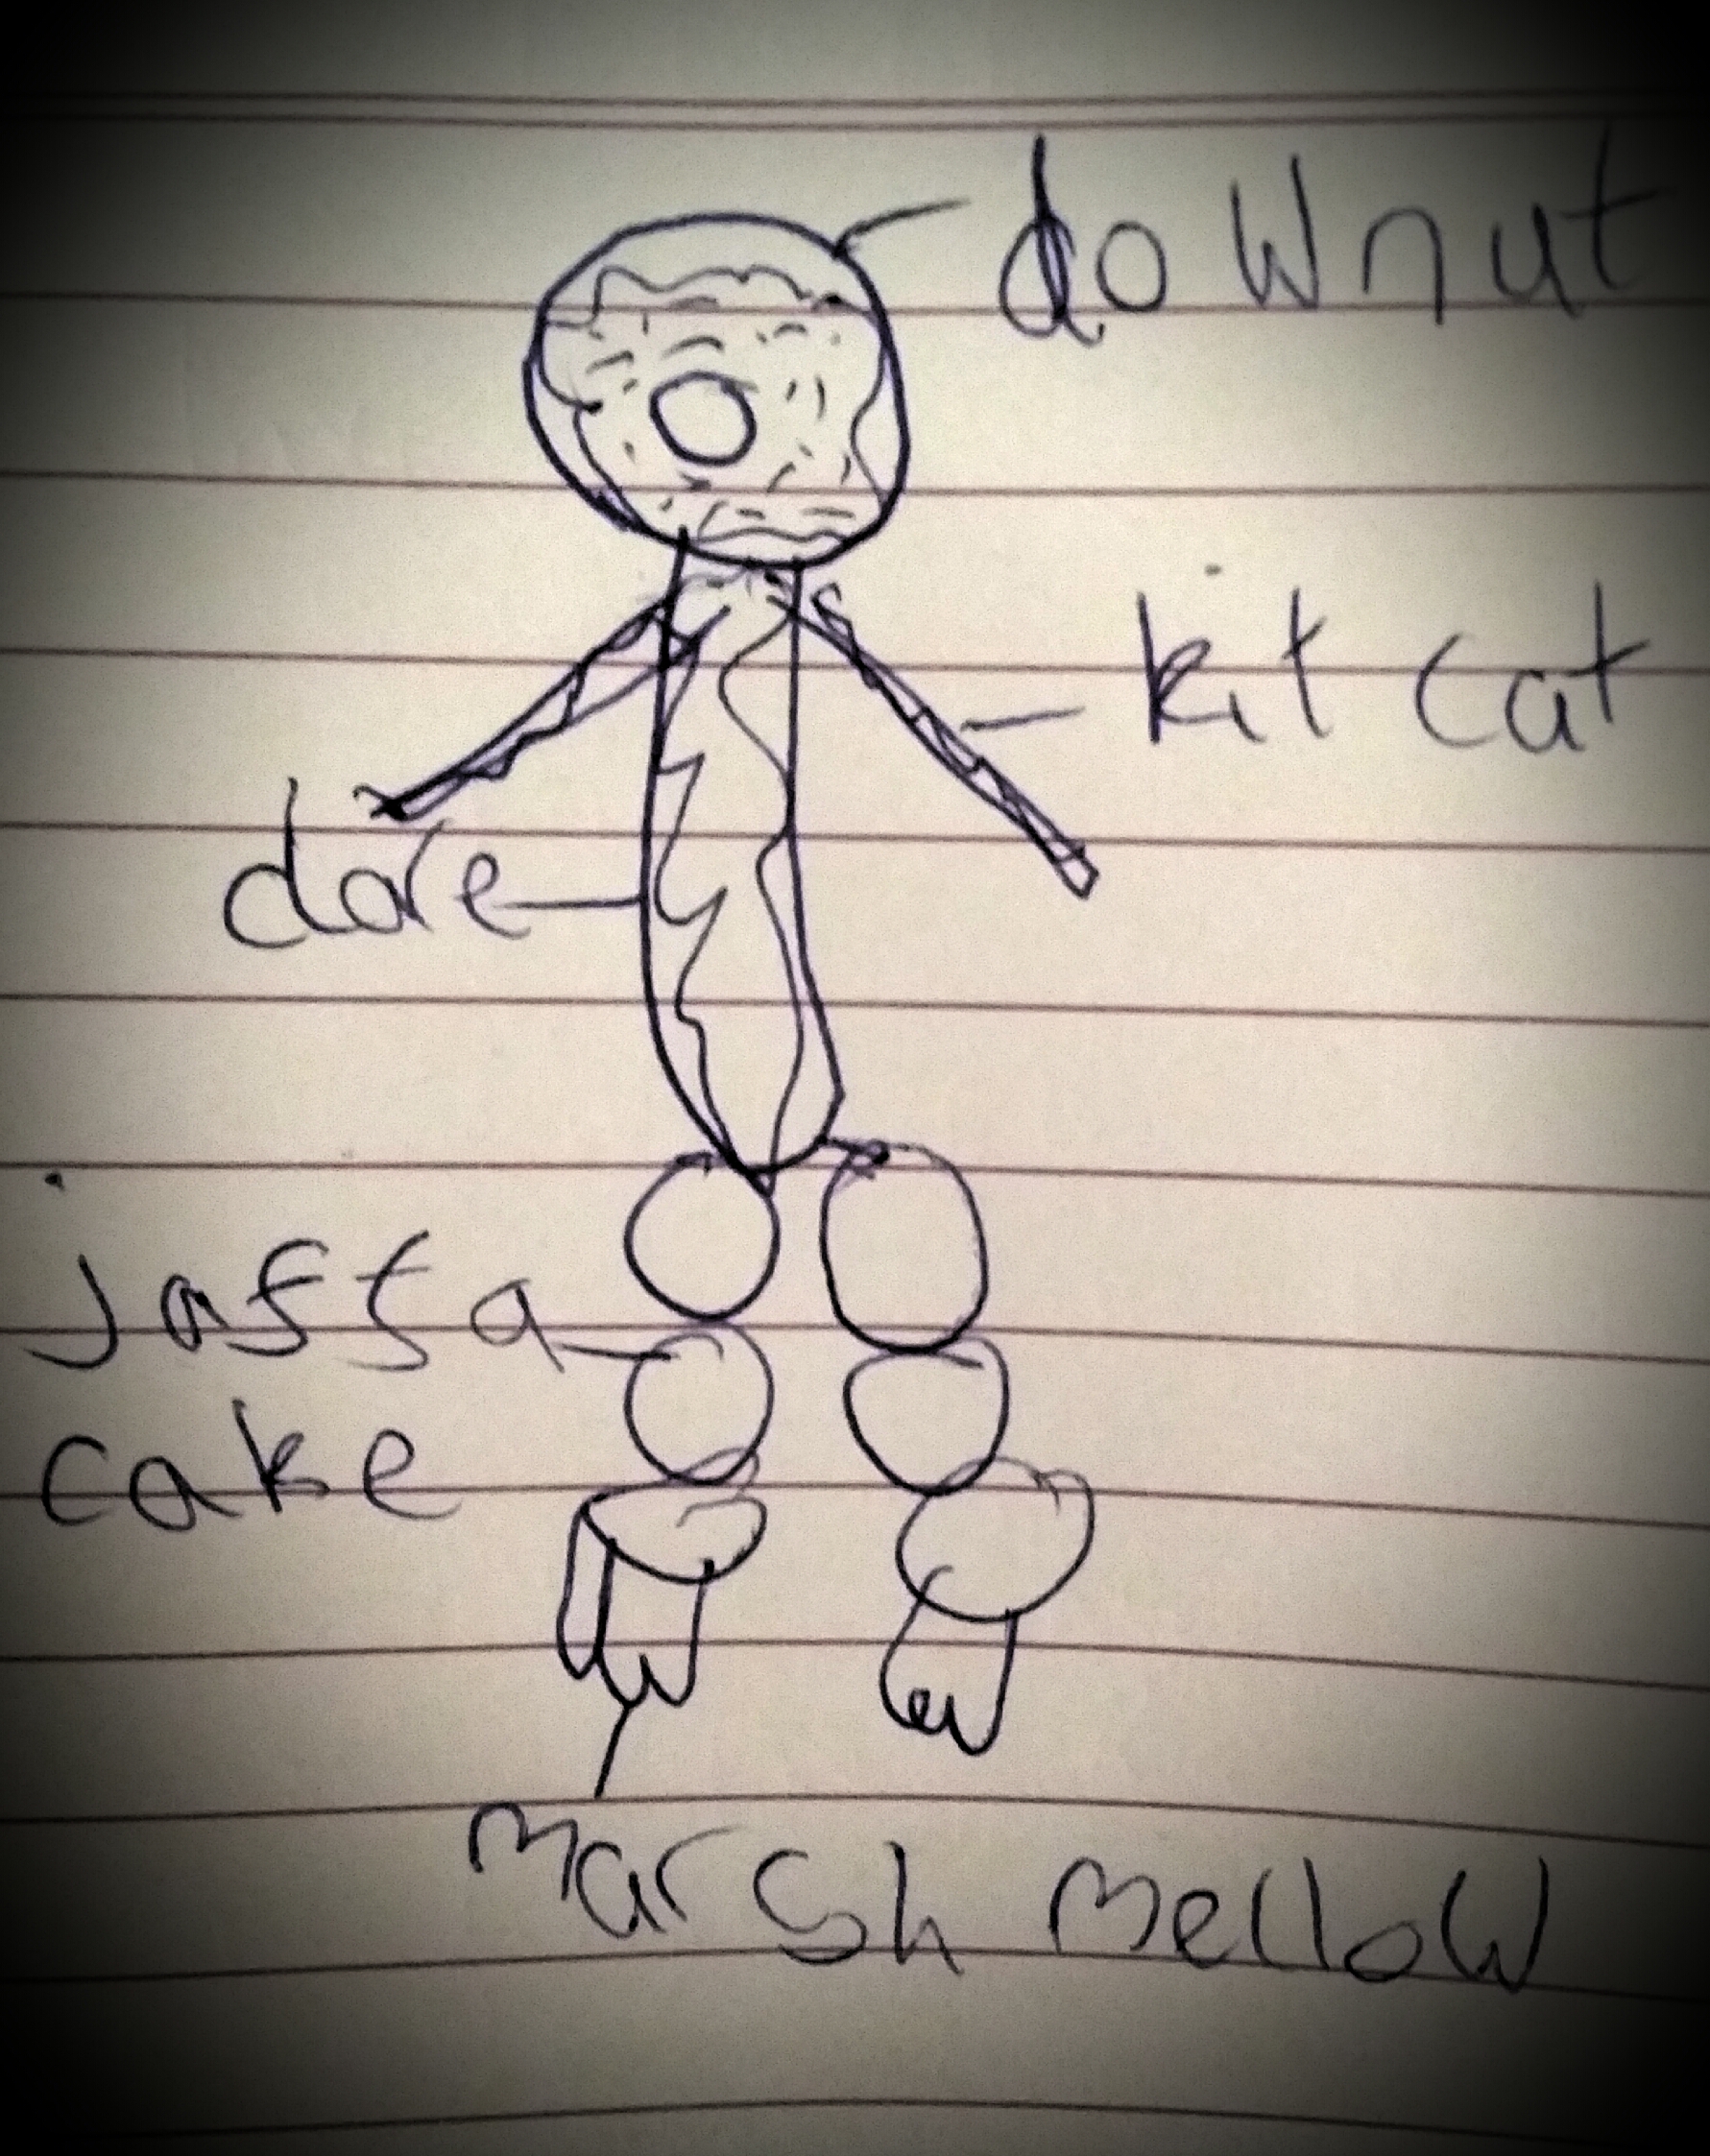 downut
kit cat
jaffa
cake
marsh mellow